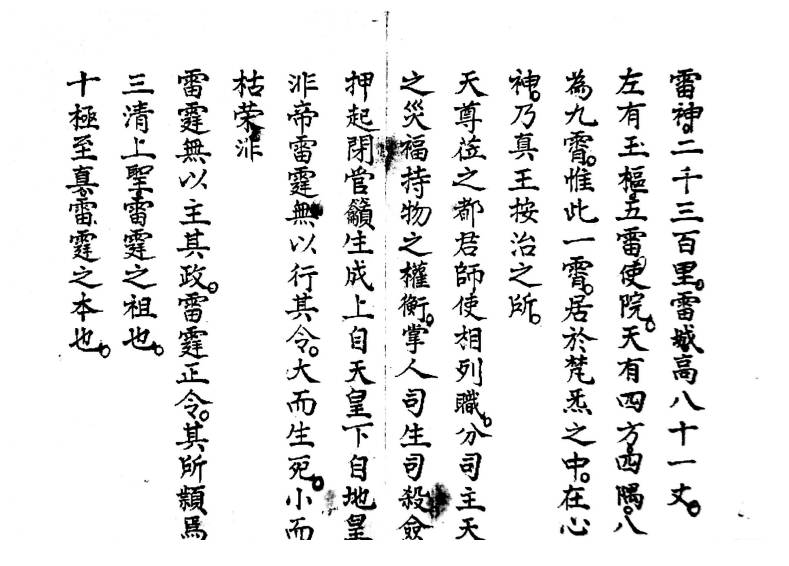 雷神。二千三百里。雷城高八十一丈。
左有玉樞。五雷使院。天有四方。四隅。八
為九霄。惟此一霄。居於梵炁之中。在心
神。乃真王按治之所。
天尊莅之都君師使相列職。分司主天
之災福持物之權衡。掌人司生司殺僉
押起閉管籟生成上自天皇下自地皇
非帝雷霆無以行其令。大而生死。小而
枯荣非
雷霆無以主其政。雷霆正令。其所顃焉
三清上聖。雷霆之祖也。
十極至真。雷霆之本也。